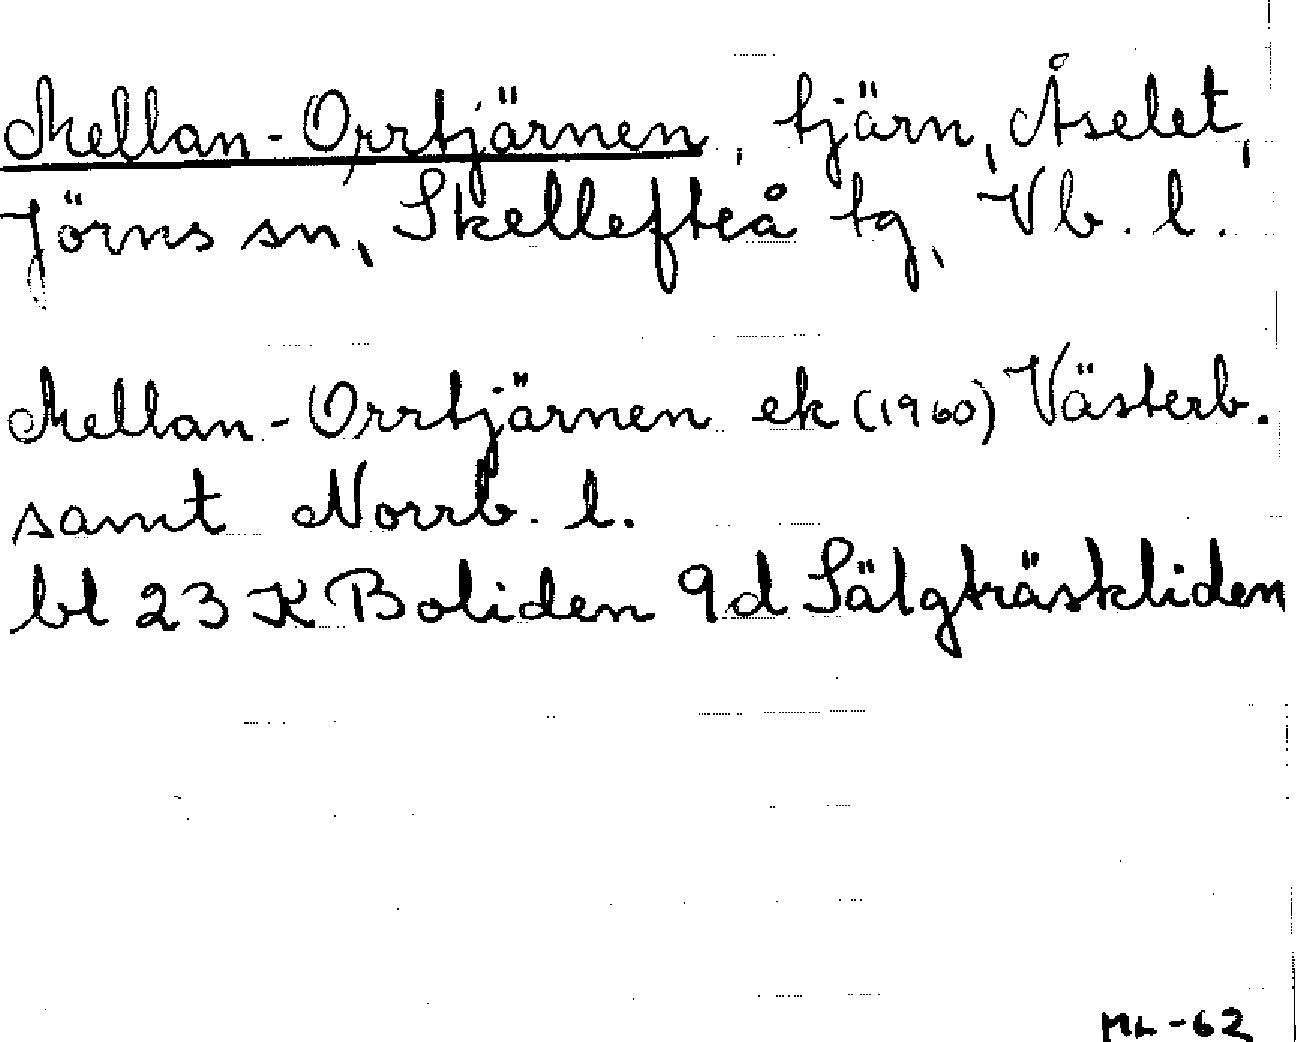 Mellan-Orrtjärnen, tjärn, Åselet,
Jörns sn, Skellefteå tg, Vb. l.
Mellan-Orrtjärnen ek (1960) Västerb.
samt Norrb. l.
bl 23 K Boliden 9d Sälgträskliden
ML-62